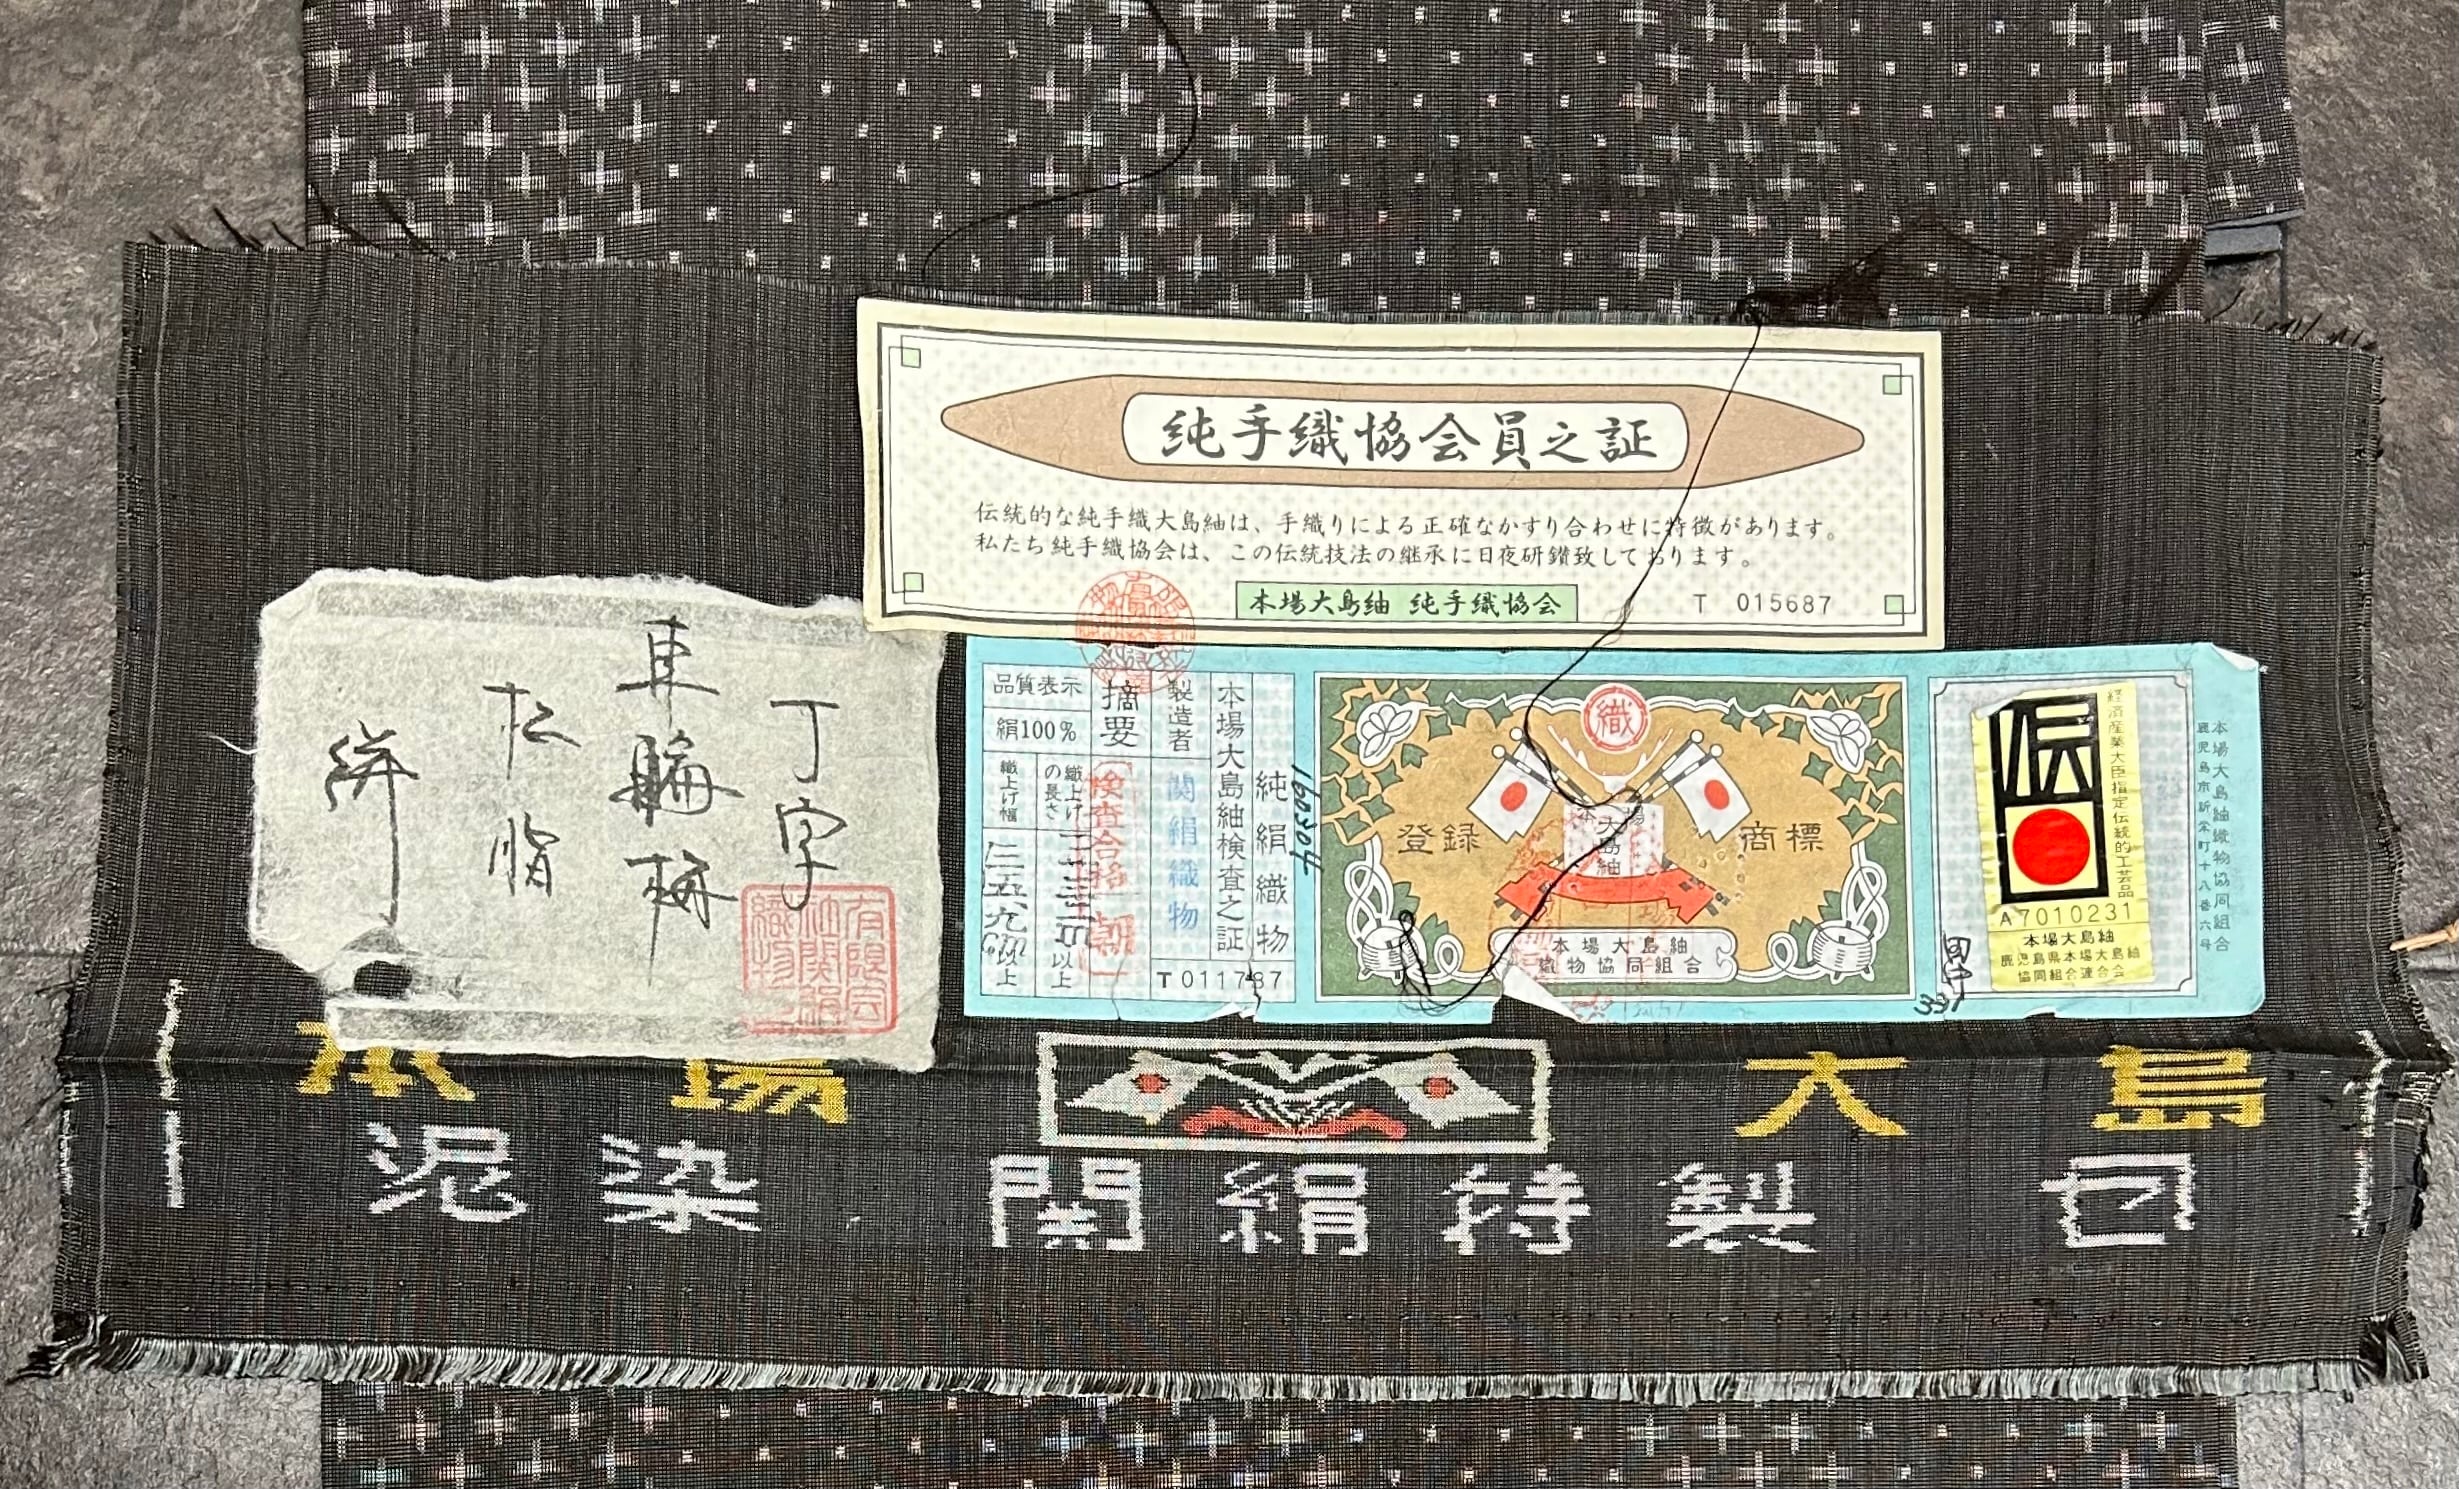 純手織協会員之証
伝統的な純手織大島紬は、手織りによる正確なかすり合わせに特徴があります。
私たち純手織協会は、この伝統技法の継承に日夜研鑽致しております。
本場大島紬 純手織協会
T 015687
丁字
車輪梅
松脂
絣
有限会
社関絹
織物
経済産業大臣指定伝統的工芸品
伝
A7010231
本場大島紬
鹿児島県本場大島紬
協同組合連合会
本場大島紬織物協同組合
鹿児島市新栄町十八番六号
田中
337
織
登録 商標
本場
大島紬
本場大島紬
織物協同組合
160304
純絹織物
本場大島紬検査之証
製造者
関絹織物
T011787
摘要
検査合格
朝
品質表示
絹100%
織上げの長さ
以上
織上げ幅
以上
本場 大島
泥染 関絹特製